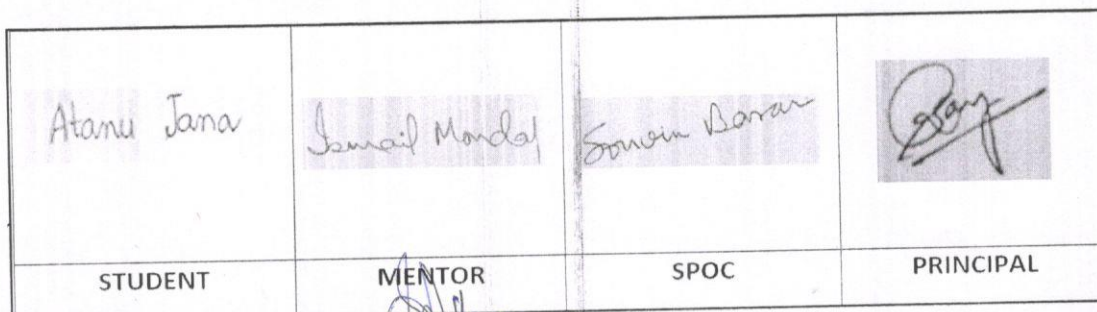 Atanu Jana
Ismail Mondal
Barar
STUDENT MENTOR SPOC PRINCIPAL